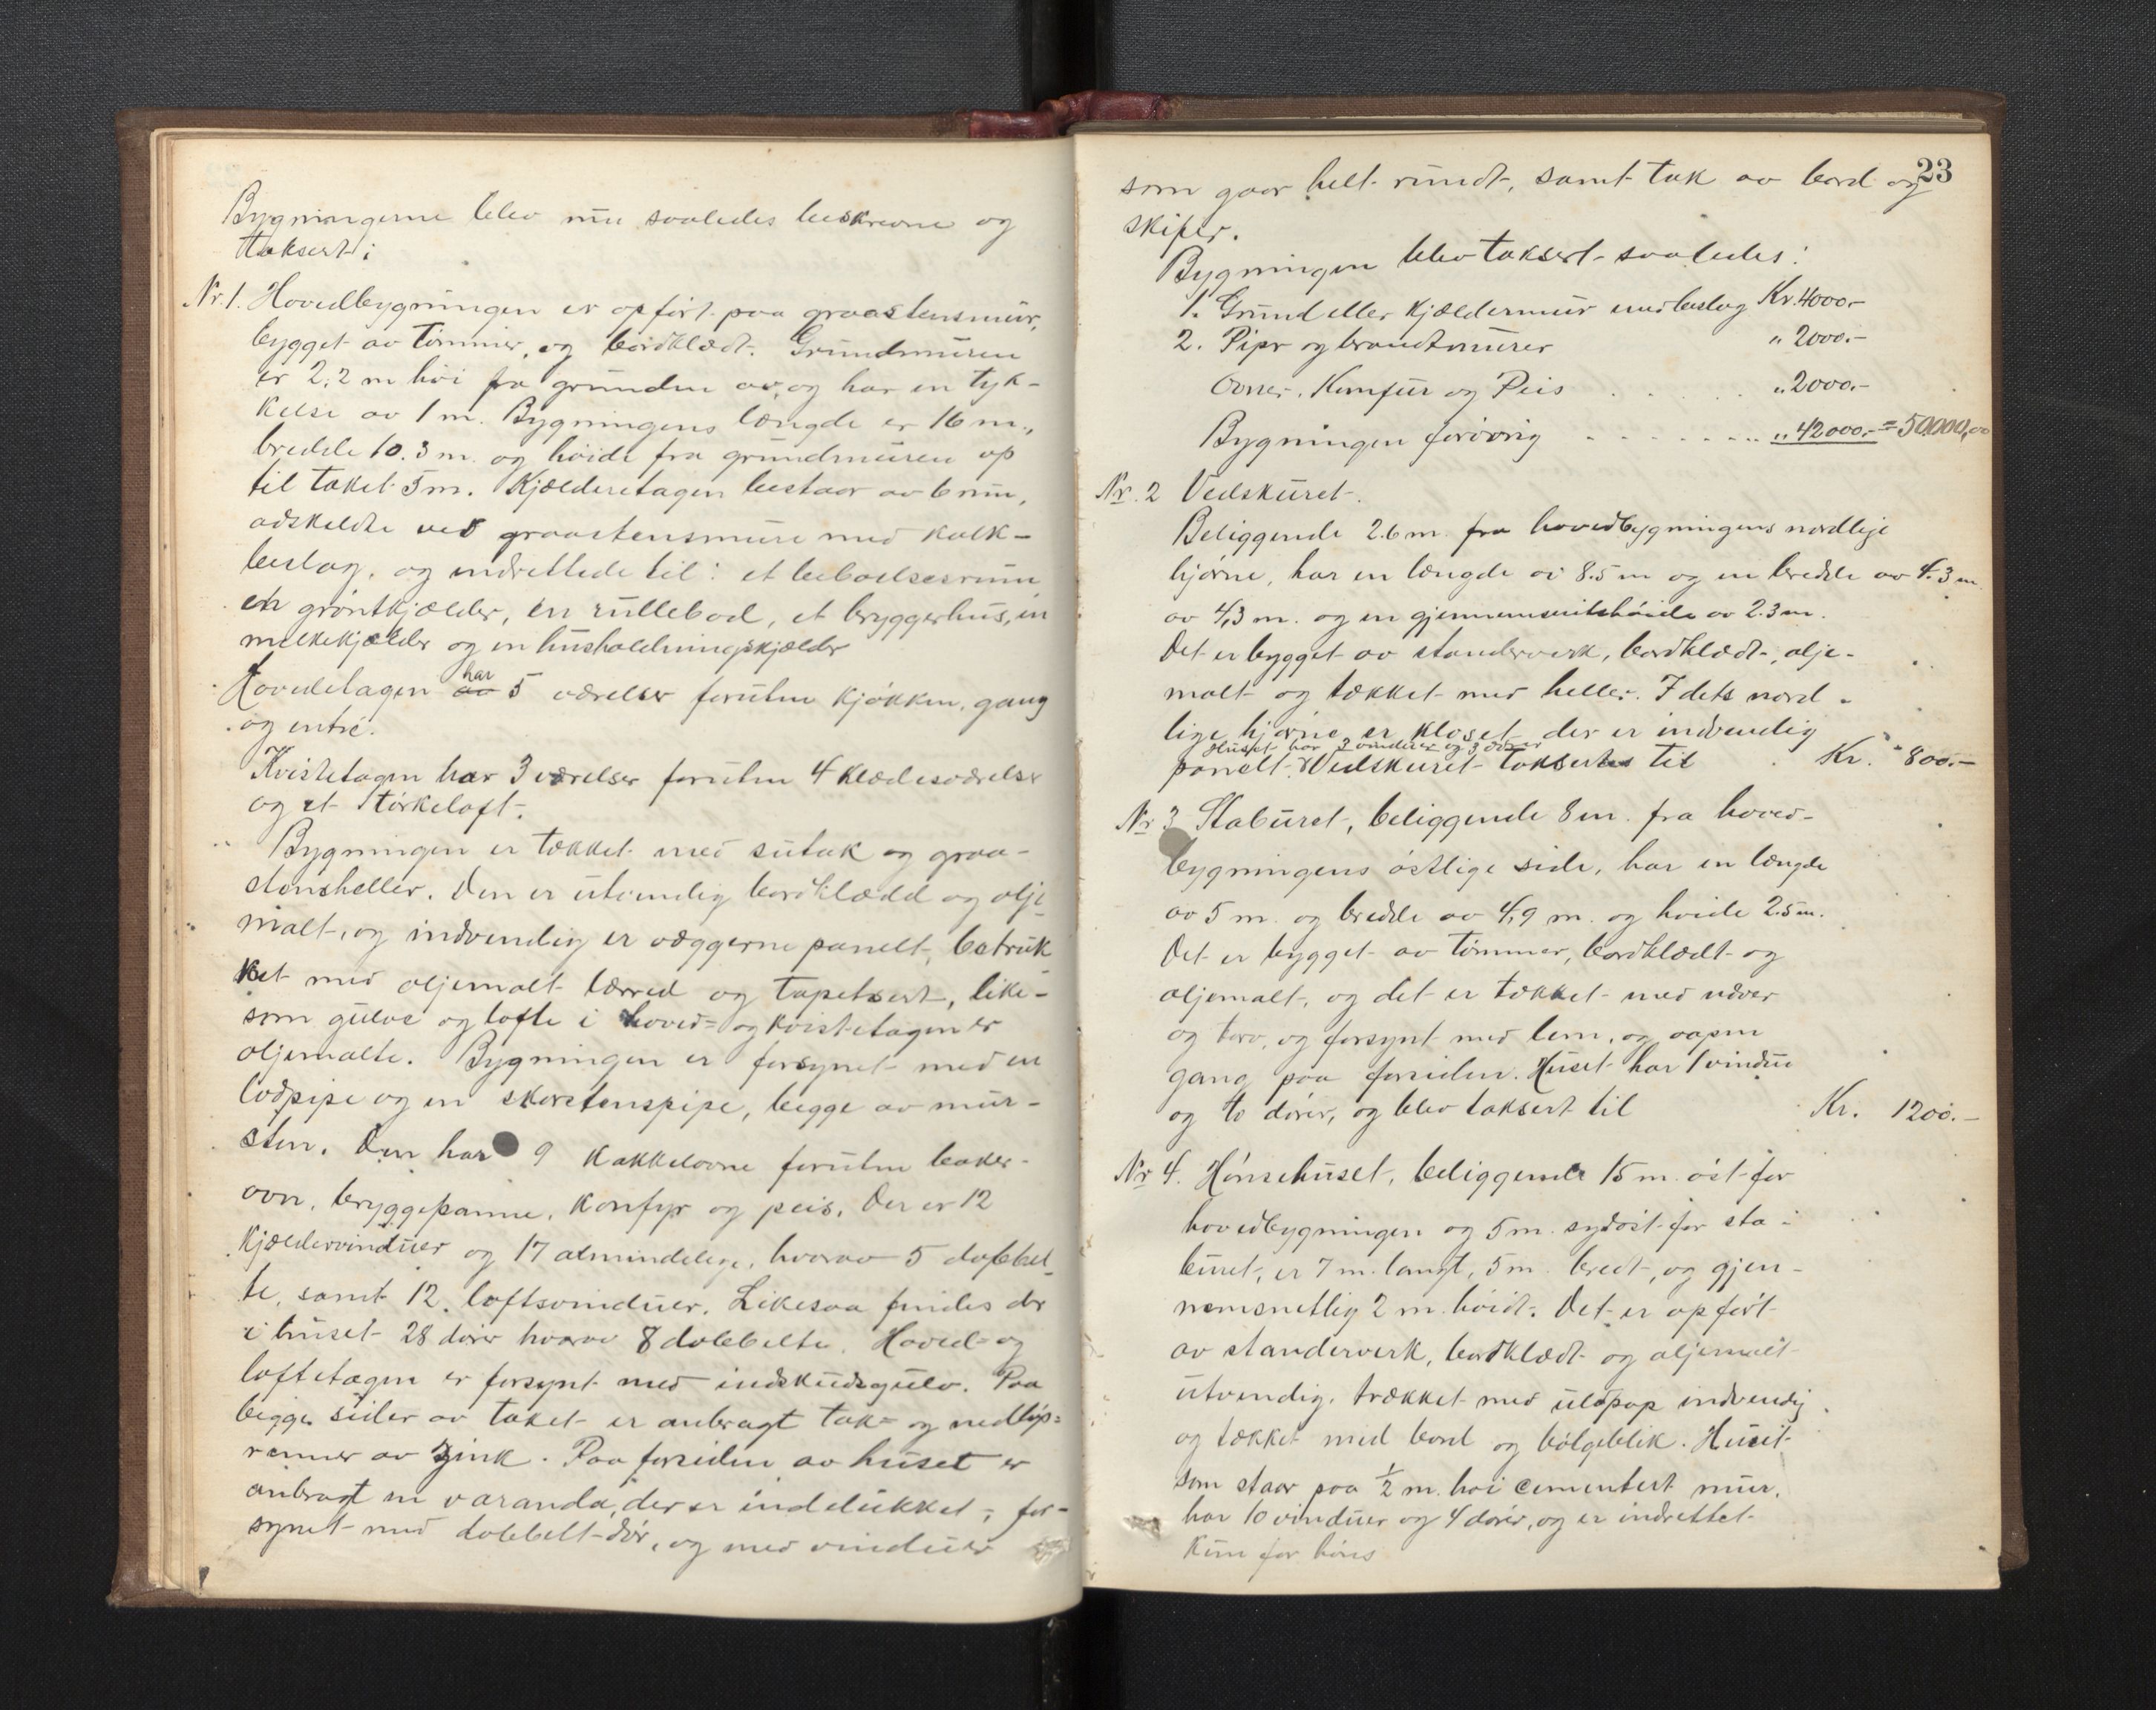 Bygningerne blev nu saaledes beskrevne og
taksert:
Nr. 1. Hovedbygningen er opført paa graastensmur,
bygget av tømmer, og bordklædt. Grundmuren
er 2,2 m høi fra grunden av, og har en tyk-
kelse av 1 m. Bygningens længde er 16 m.,
bredde 10.3 m. og høide fra grundmuren op
til taket 5 m. Kjælderetagen bestaar av 6 rum,
adskeldte ved graastensmure med kalk-
beslag, og indrettede til: et beboelsesrum
en grøntkjælder, en rullebod, et bryggerhus, en
melkekjælder og en husholdningskjælder
Hovedetagen har 5 værelser foruten kjøkken, gang
og entré.
Kvistetagen har 3 værelser foruten 4 klædesværelser
og et tørkeloft.
Bygningen er tækket med sutak og graa-
stensheller. Den er utvendig bordklædd og olje-
malt, og indvendig er væggerne panelt, betruk
ket med oljemalt lærred og tapetsert, like-
som gulve og lofte i hoved= og kvistetagen er
oljemalte. Bygningen er forsynet med en
lodpipe og en skorstenspipe, begge av mur-
sten. Den har 9 kakkelovne foruten baker-
ovn, bryggepanne, konfyr og peis. Der er 12
kjældervinduer og 17 almindelige, hvorav 5 dobbel-
te, samt 12 loftsvinduer. Likesaa findes der
i huset 28 dører hvorav 8 dobbelte. Hoved- og
loftetagen er forsynt med indskudsgulv. Paa
begge sider av taket er anbragt tak= og nedløps=
renner av zink. Paa forsiden av huset er
anbragt en varanda, der er indelukket, for-
synet med dobbelt-dør, og med vinduer
23
som gaar helt rundt, samt tak av bord og
skifer.
Bygningen blev taksert saaledes:
1. Grund eller kjældermur med beslag Kr. 4000.-
2. Pipr og brandtmurer " 2000.-
Ovner, Komfur og Peis . . . . . " 2000.-
Bygningen forøvrig - - - - - - - - " 42000.- = 50,000,00
Nr. 2 Vedskuret.
Beliggende 2.6 m. fra hovedbygningens nordlige
hjørne, har en længde av 8.5 m og en bredde av 4.3 m
av 4,3 m. og en gjennemsnitshøide av 2.3 m.
Det er bygget av standerverk, bordklædt, olje-
malt og tækket med heller. I dets nord-
lige hjørne er kloset der er indvendig
Huset har 3 vinduer og 3 dører
panelt. Vedskuret taksertes til . Kr. " 800.-
Nr 3 Staburet, beliggende 8 m. fra hoved-
bygningens østlige side, har en længde
av 5 m. og bredde av 4,9 m. og høide 2.5 m.
Det er bygget av tømmer, bordklædt og
oljemalt, og det er tækket med næver
og torv, og forsynt med lem, og aapen
gang paa forsiden. Huset har 1 vindue
og to dører, og blev taksert til Kr. 1200.-
Nr 4. Hønsehuset, beliggende 15 m. øst for
hovedbygningen og 5 m. sydøst for sta-
buret, er 7 m. langt, 5 m. bredt, og gjen-
nemsnetlig 2 m. høidt. Det er opført
av standerverk, bordklædt og oljemalt
utvendig, trækket med uldpap indvendig
og tækket med bord og bølgeblik. Huset
som staar paa ½ m. høi cementert mur,
har 10 vinduer og 4 dører, og er indrettet
kun for høns